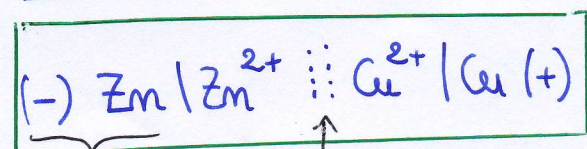 (-) Zn | Zn²⁺ ⋮⋮ Cu²⁺ | Cu (+)